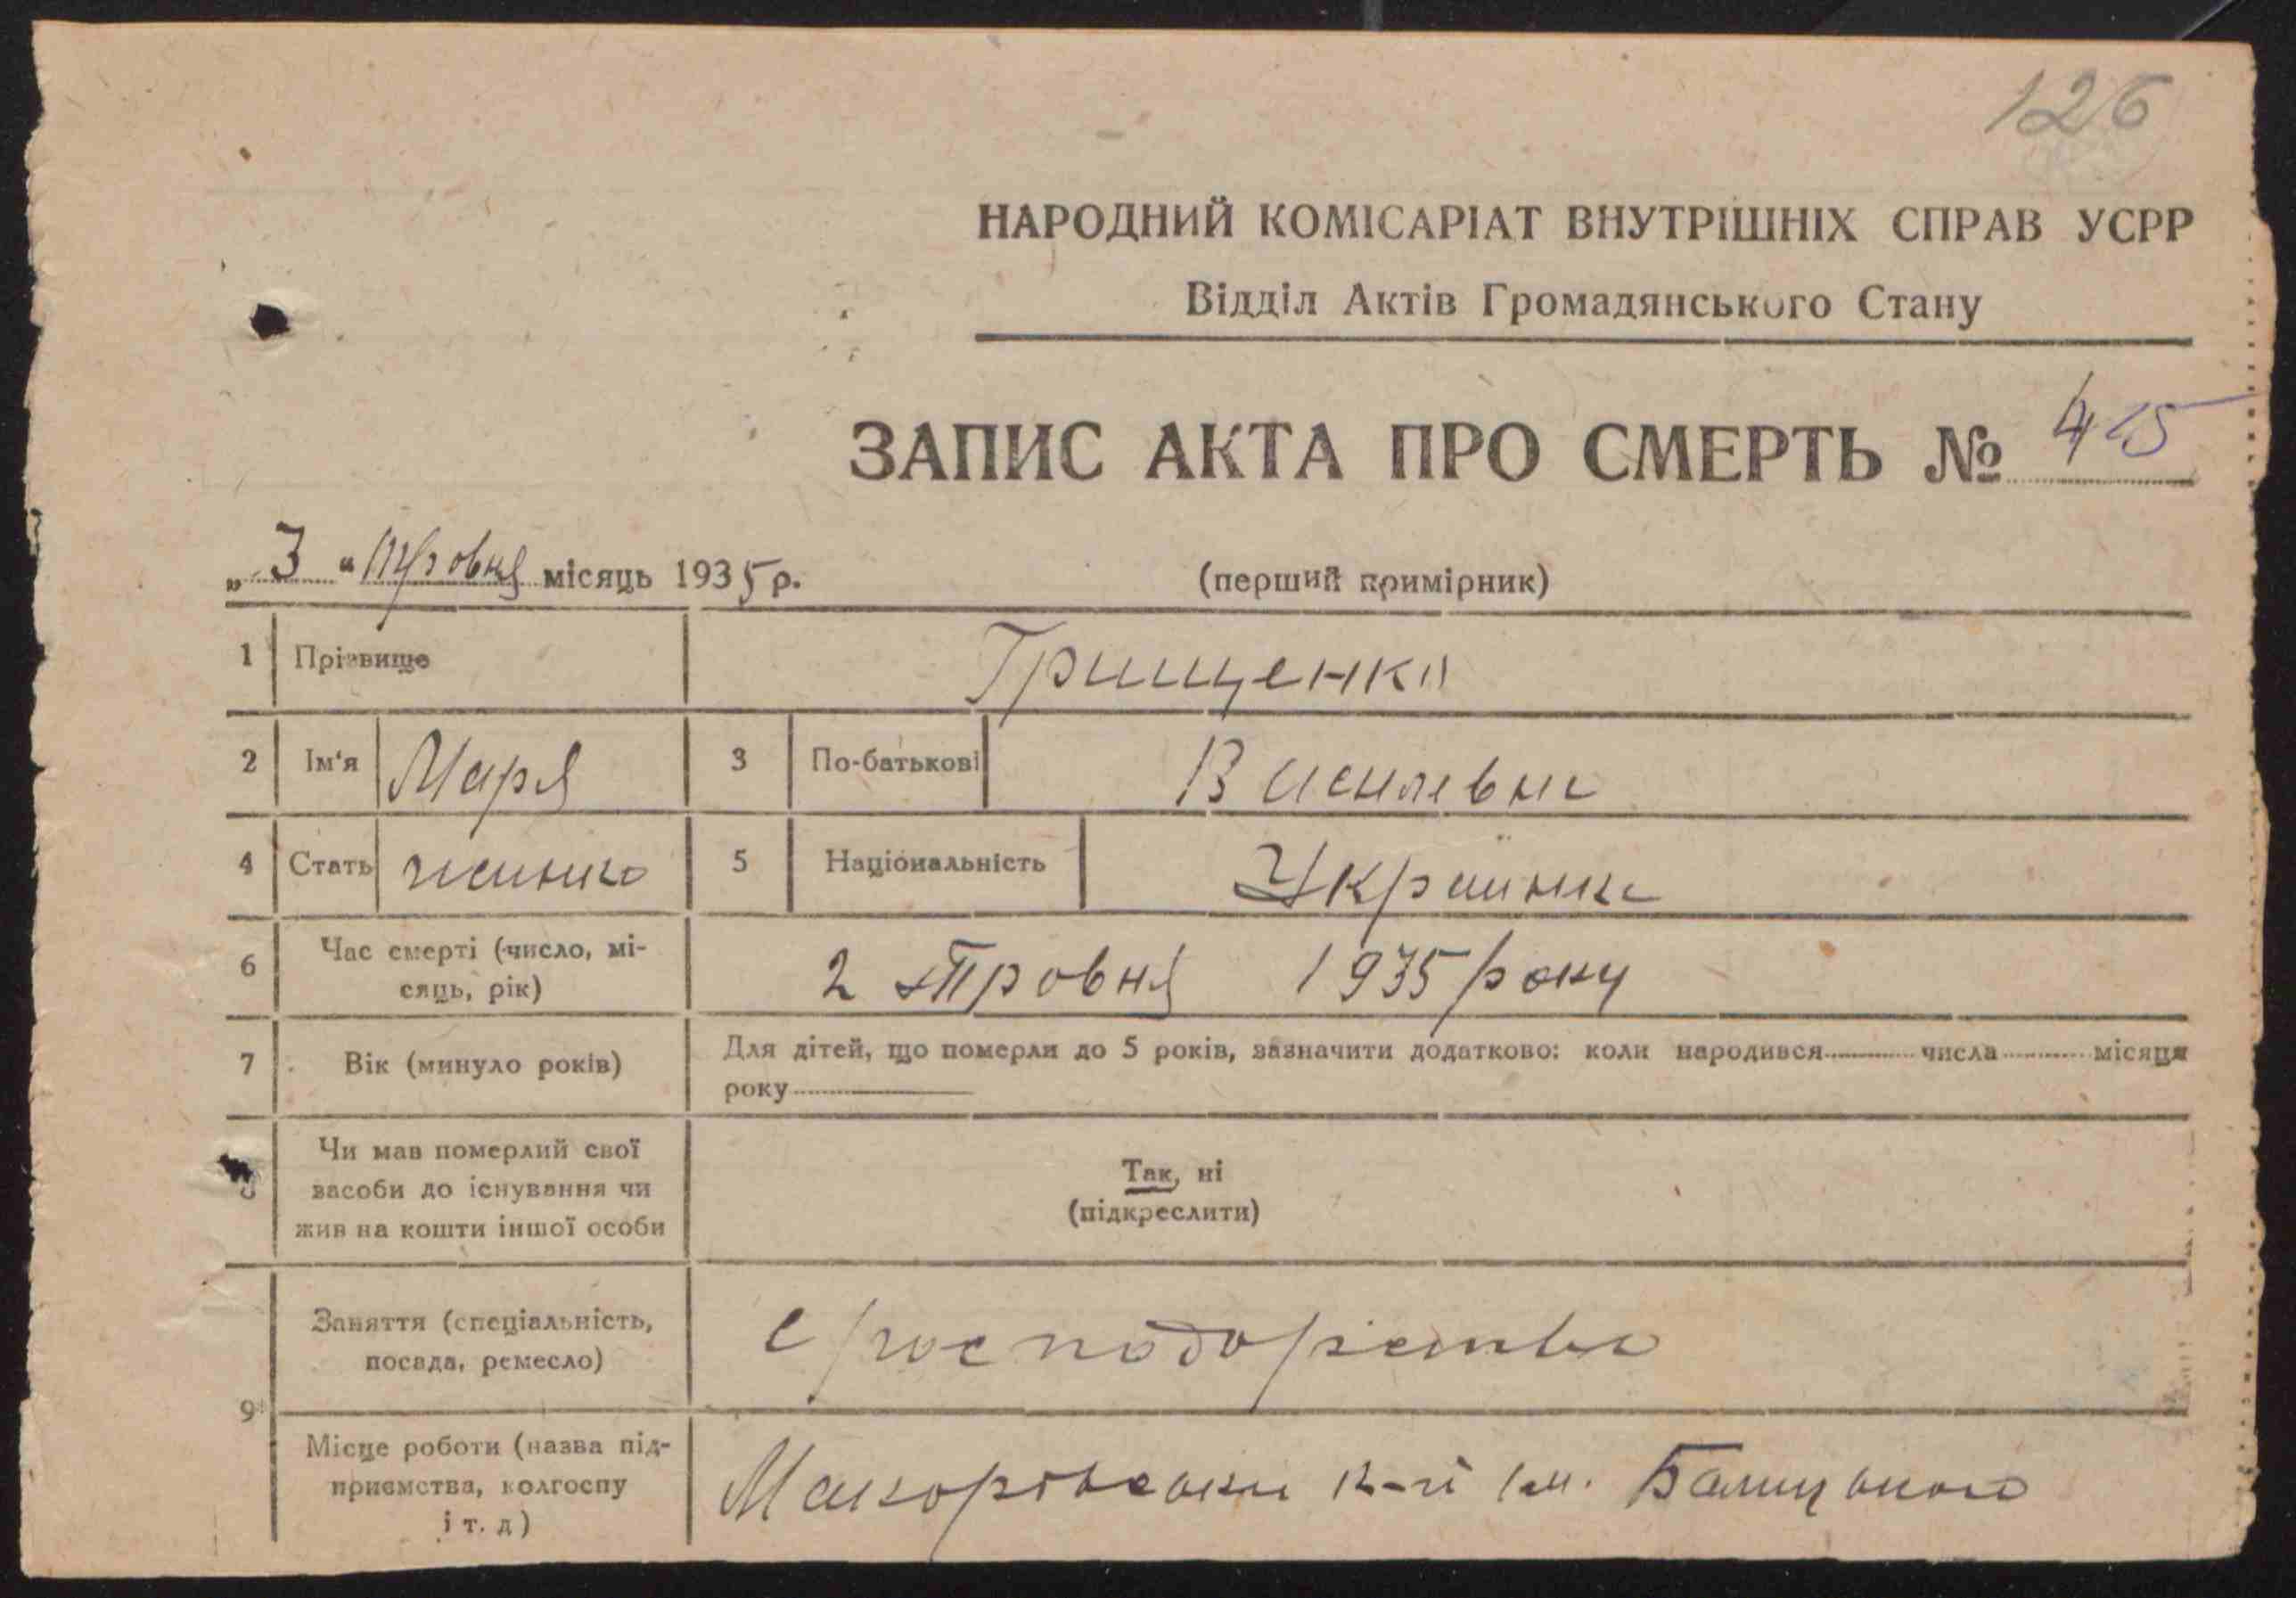 126
НАРОДНИЙ КОМІСАРІАТ ВНУТРІШНІХ СПРАВ УСРР
Відділ Актів Громадянського Стану
ЗАПИС АКТА ПРО СМЕРТЬ № 415
„ 3 “ Тровня місяць 1935 р.
(перший примірник)
1 Прізвище Грищенко
2 Ім'я Маря 3 По-батькові Василевна
4 Стать жінка 5 Національність Українка
6 Час смерті (число, мі-
сяць, рік) 2 Тровня 1935 року
7 Вік (минуло років) Для дітей, що померли до 5 років, зазначити додатково: коли народився числа місяця
року
8 Чи мав померлий свої
засоби до існування чи
жив на кошти іншої особи
Так, ні
(підкреслити)
9 Заняття (спеціальність,
посада, ремесло) с/господорства
Місце роботи (назва під-
приємства, колгоспу
і т. д) Макорівский к-п ім. Балицького